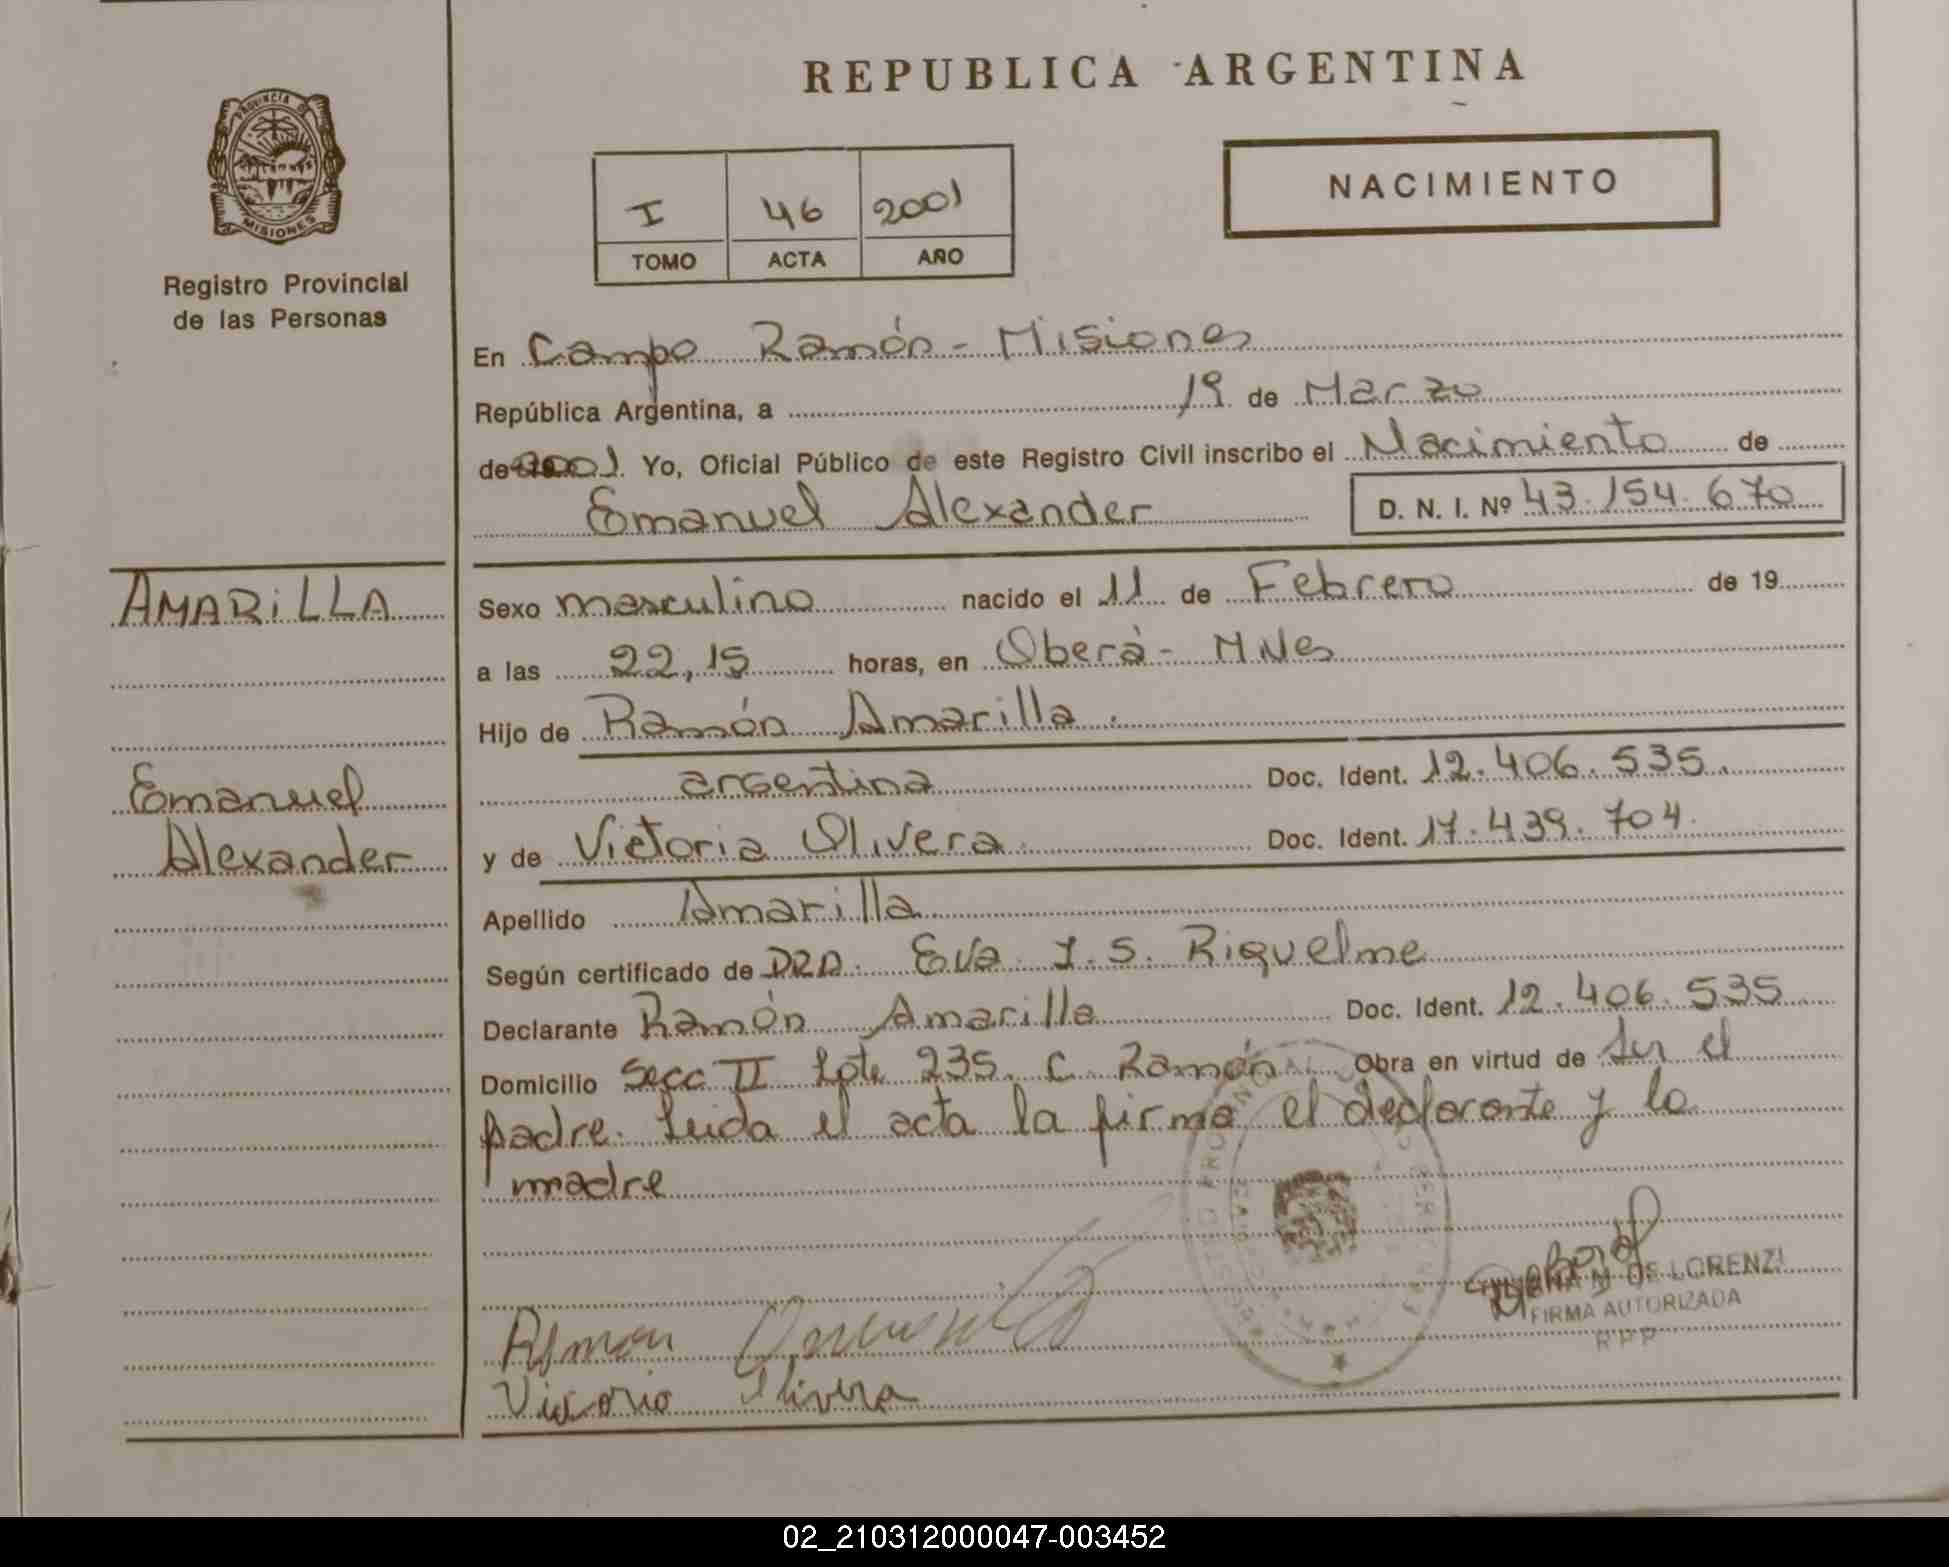 REPUBLICA ARGENTINA
PROVINCIA DE
MISIONES
Registro Provincial
de las Personas
I 46 2001
TOMO ACTA AÑO
NACIMIENTO
En Campo Ramón - Misiones
República Argentina, a 19 de Marzo
de 2001. Yo, Oficial Público de este Registro Civil inscribo el Nacimiento de
Emanuel Alexander D. N. I. Nº 43.154.670
AMARILLA
Emanuel
Alexander
Sexo masculino nacido el 11 de Febrero de 19
a las 22,15 horas, en Oberá - MNes
Hijo de Ramón Amarilla.
argentina Doc. Ident. 12.406.535.
y de Victoria Olivera. Doc. Ident. 17.439.704.
Apellido Amarilla
Según certificado de DRA. Eva I. S. Riquelme
Declarante Ramón Amarilla Doc. Ident. 12.406.535
Domicilio Secc II Lote 235. C. Ramón Obra en virtud de ser el
padre. Leida el acta la firma el declarante y la
madre
Ramon
Victoria Olivera
M. DE LORENZI
FIRMA AUTORIZADA
R P P
02_210312000047-003452